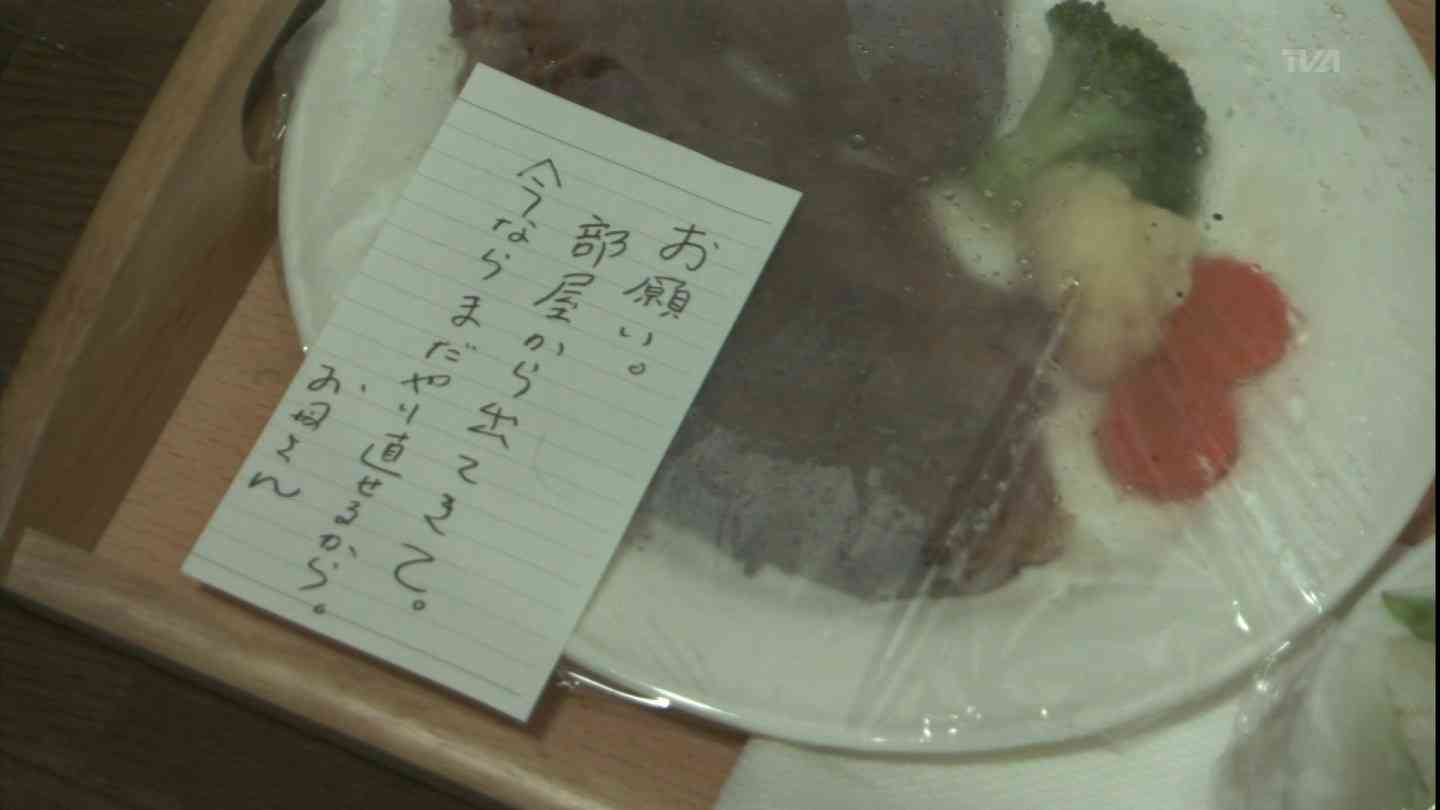 お願い。
部屋から出てきて。
今ならまだやり直せるから。
お母さん
TVA